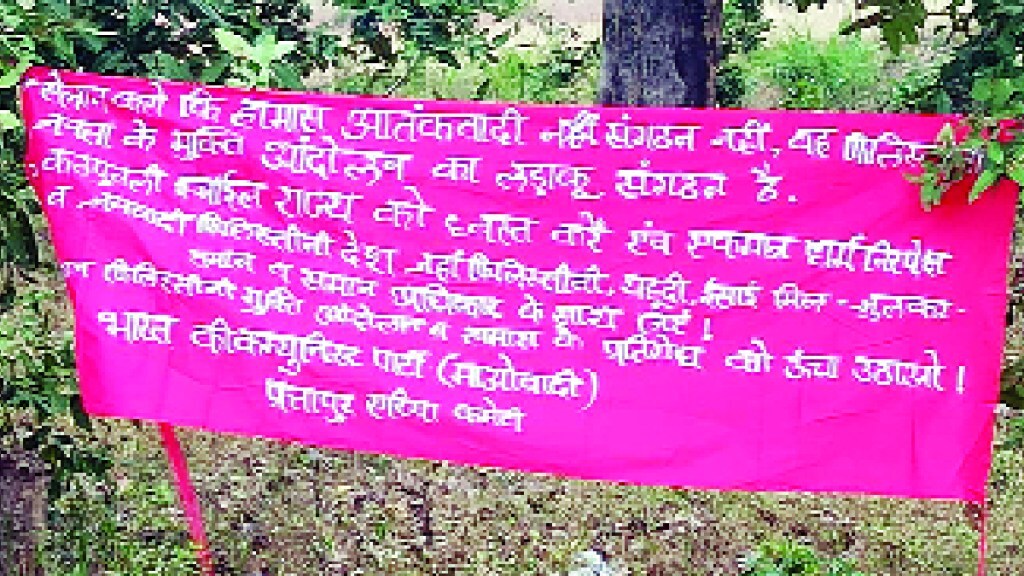 ऐलान करो कि हामास आतंकवादी नहीं संगठन नहीं, यह फिलिस्तीनी
जनता के मुक्ति आंदोलन का लड़ाकू संगठन है.
कठपुतली इजरॉइल राज्य को ध्वस्त करें एंव एकमात्र धर्मनिरपेक्ष
व जनवादी फिलिस्तीनी देश जहाँ फिलिस्तीनी, यहूदी, ईसाई मिल-जुलकर-
समान व समान अधिकार के साथ जिएं!
फिलिस्तीनी मुक्ति आंदोलन व हामास के प्रतिरोध को ऊँचा उठाओ!
भारत की कम्युनिस्ट पार्टी (माओवादी)
प्रतापुर एरिया कमेटी